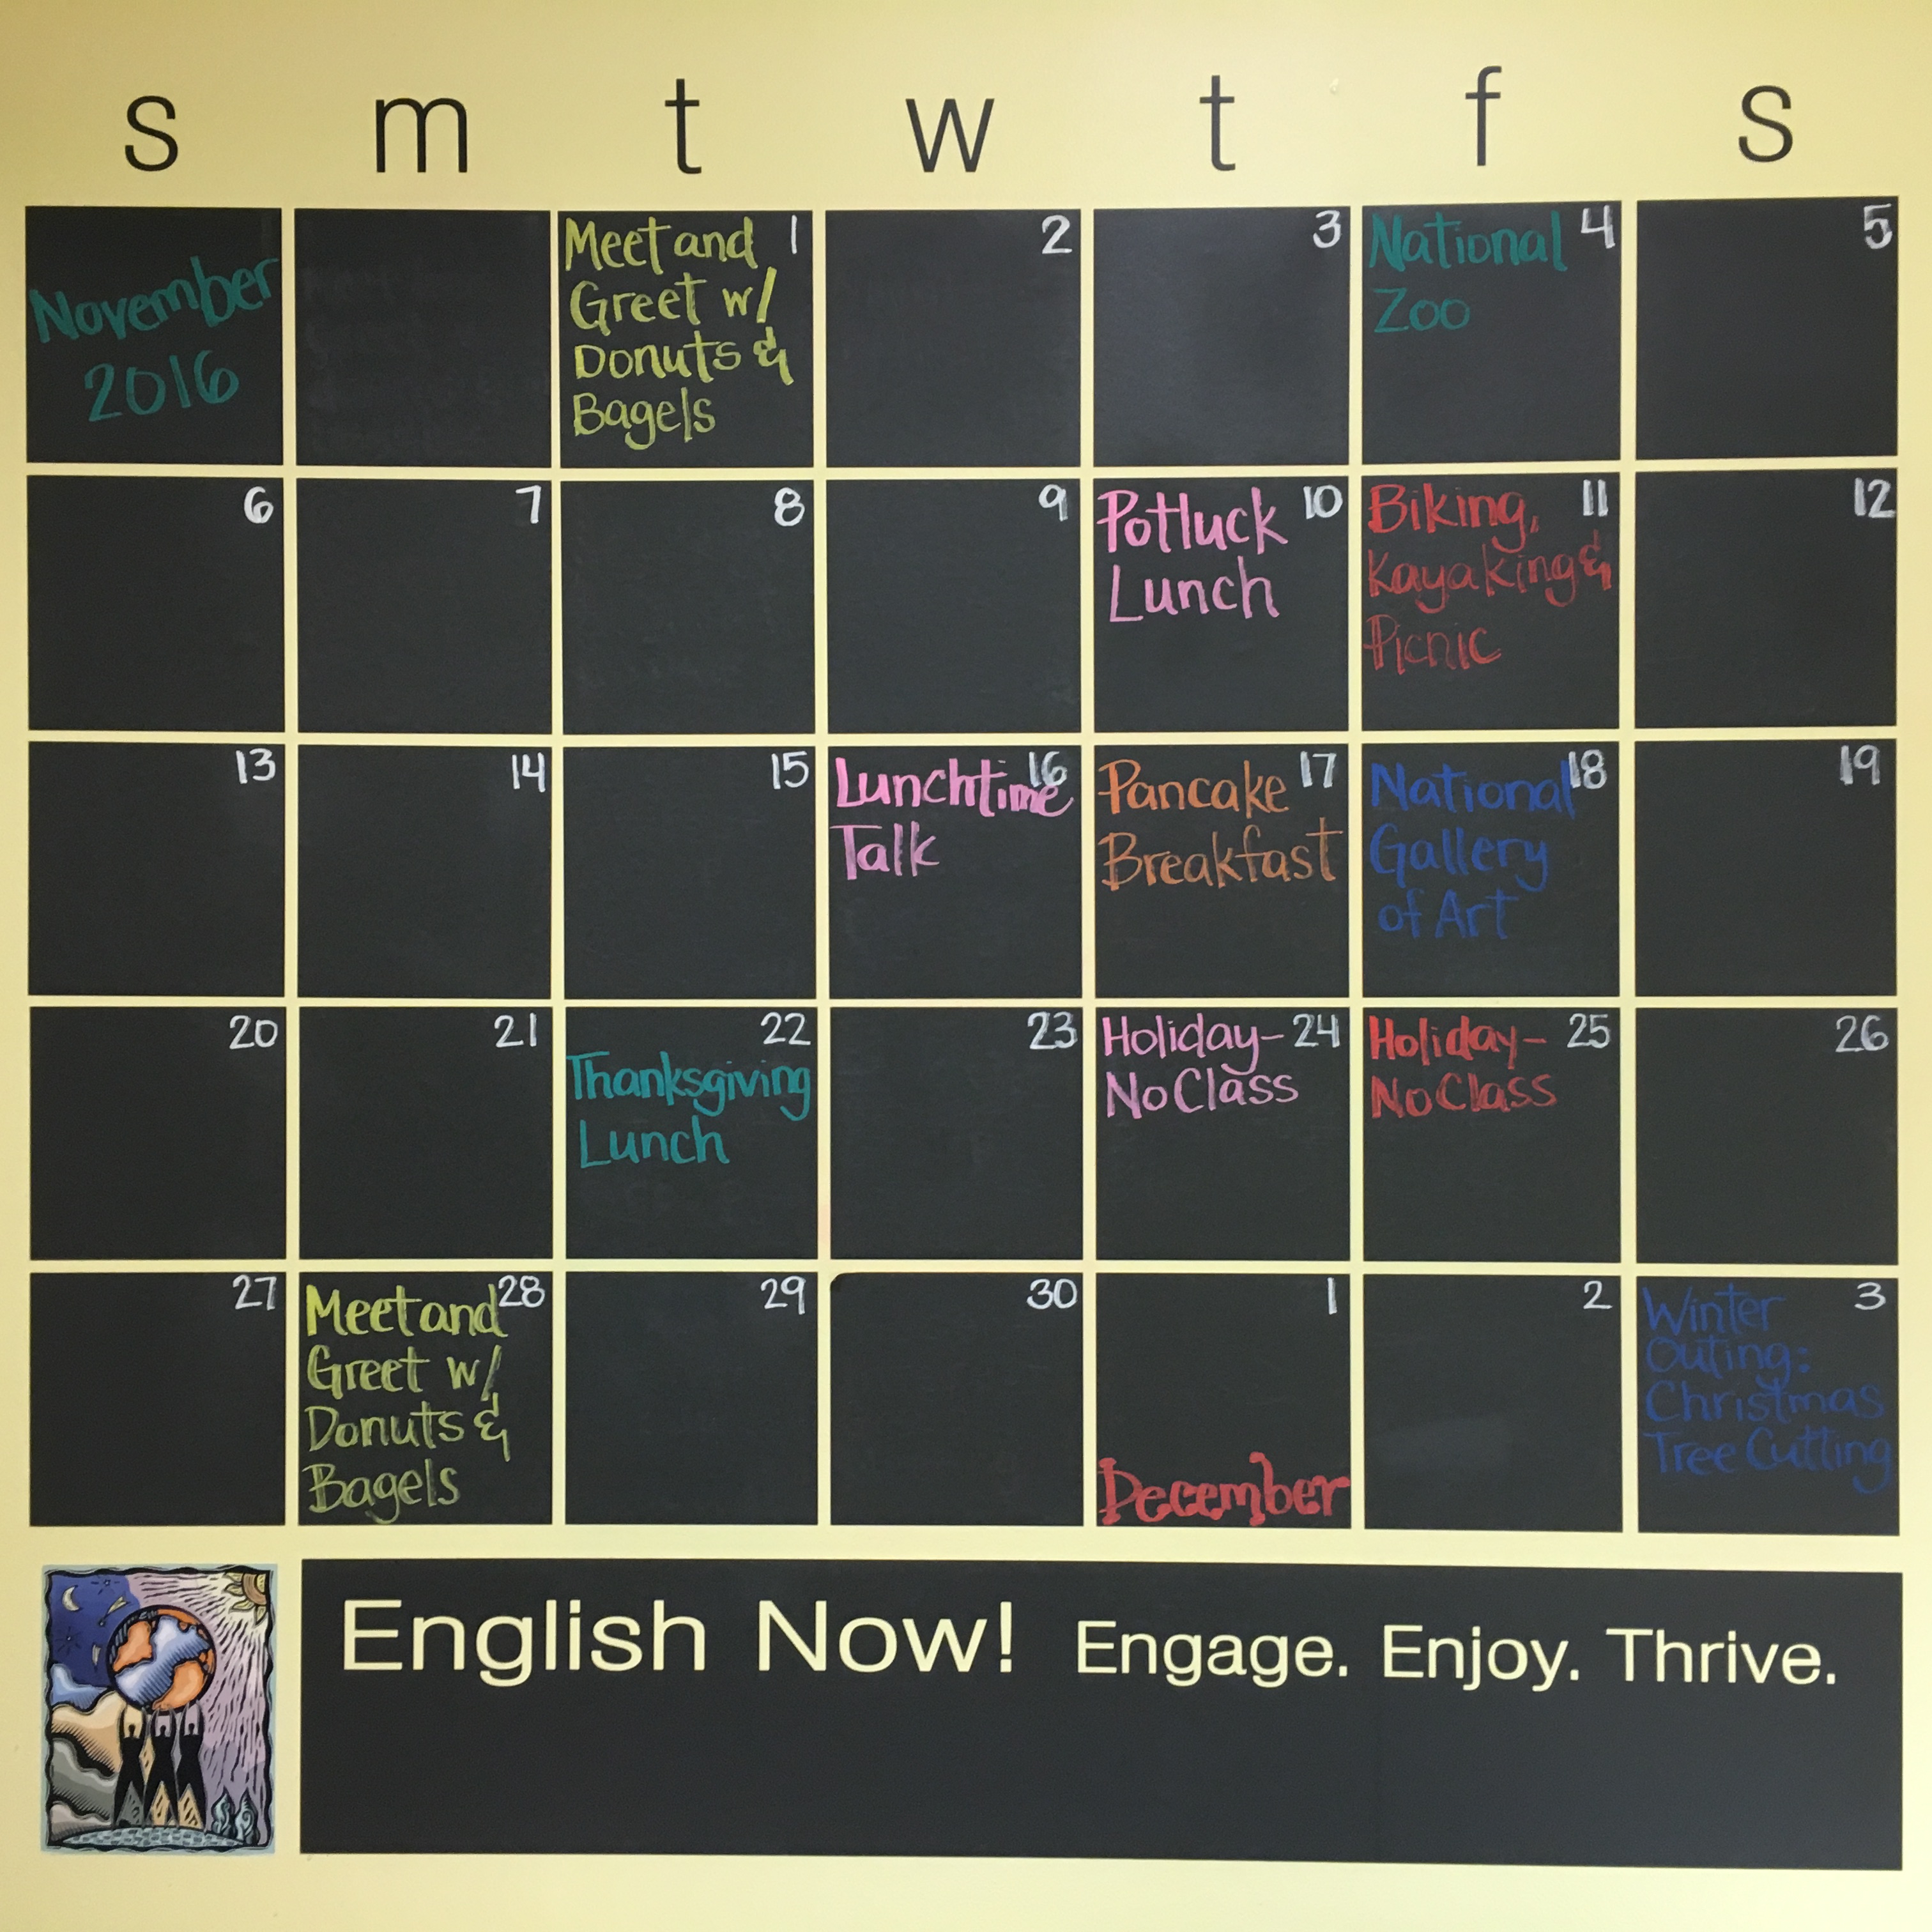 s m t w t f s
November
2016
Meet and 1
Greet w/
Donuts &
Bagels
2
3
National 4
Zoo
5
6
7
8
9
Potluck 10
Lunch
Biking, 11
Kayaking &
Picnic
12
13
14
15
Lunchtime 16
Talk
Pancake 17
Breakfast
National 18
Gallery
of Art
19
20
21
22
Thanksgiving
Lunch
23
Holiday- 24
No Class
Holiday- 25
No Class
26
27
Meet and 28
Greet w/
Donuts &
Bagels
29
30
1
December
2
Winter 3
Outing:
Christmas
Tree Cutting
English Now! Engage. Enjoy. Thrive.